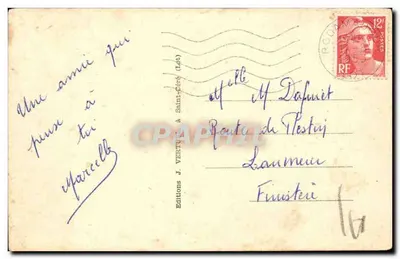 Une amie qui
pense à
toi
Marcelle
Editions J. VERTUEL à Saint-Céré (Lot)
Mlle M
Route de Plestin
Lanmeur
Finistère
12F
POSTES
RF
CPAPHIL